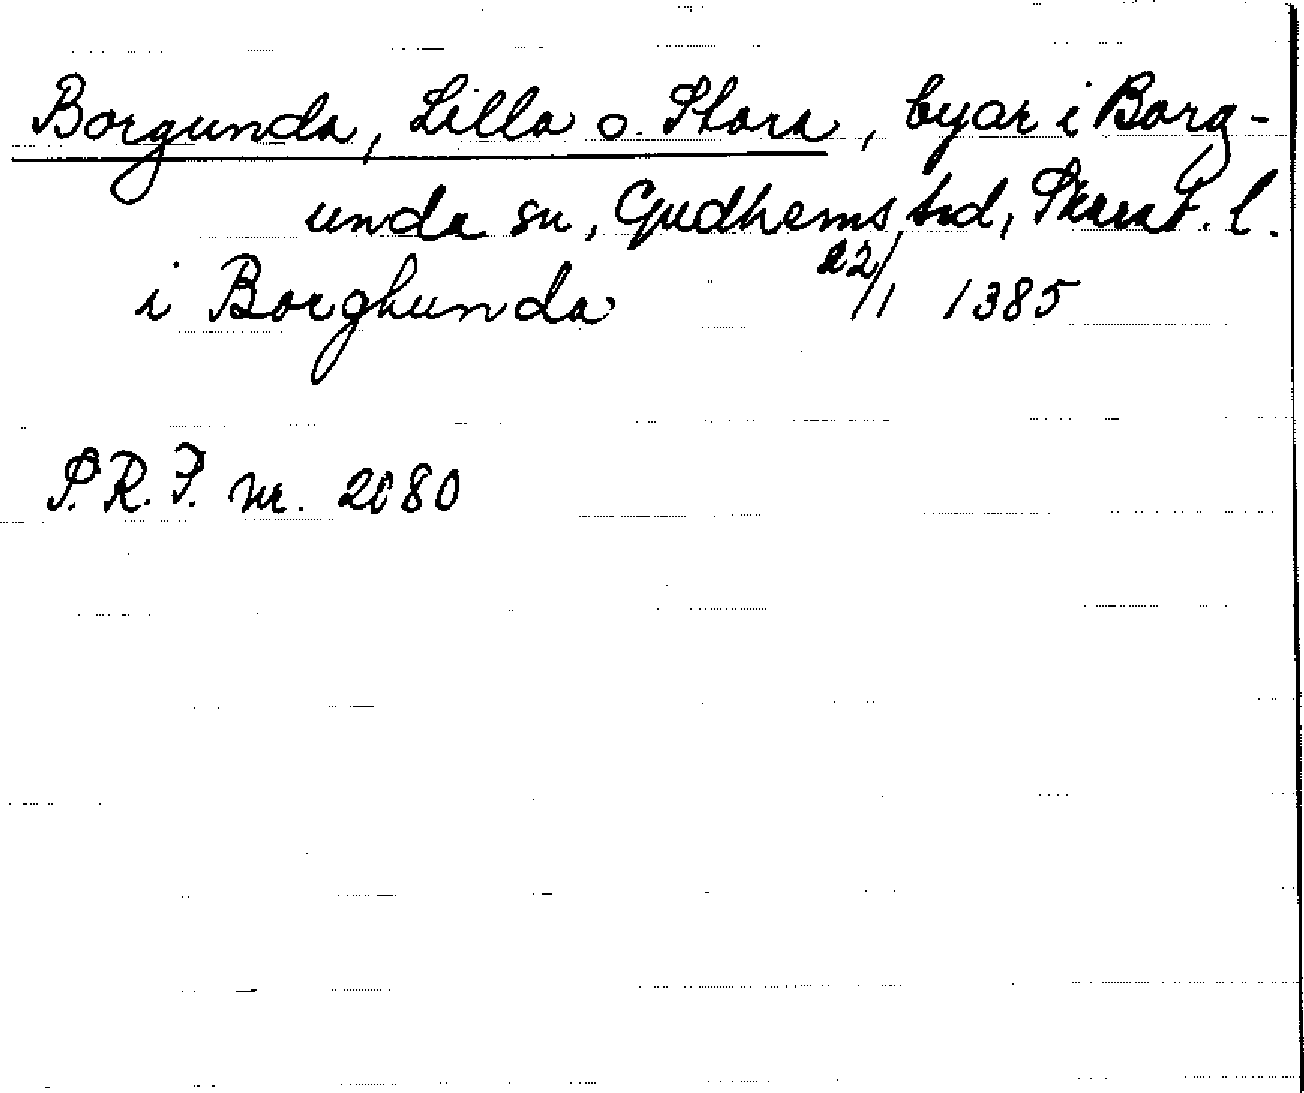 Borgunda, Lilla o. Stora, byar i Borg-
unda sn, Gudhems hd, Skarab. l.
i Borghunda 22/1 1385
P.R.P. nr. 2080